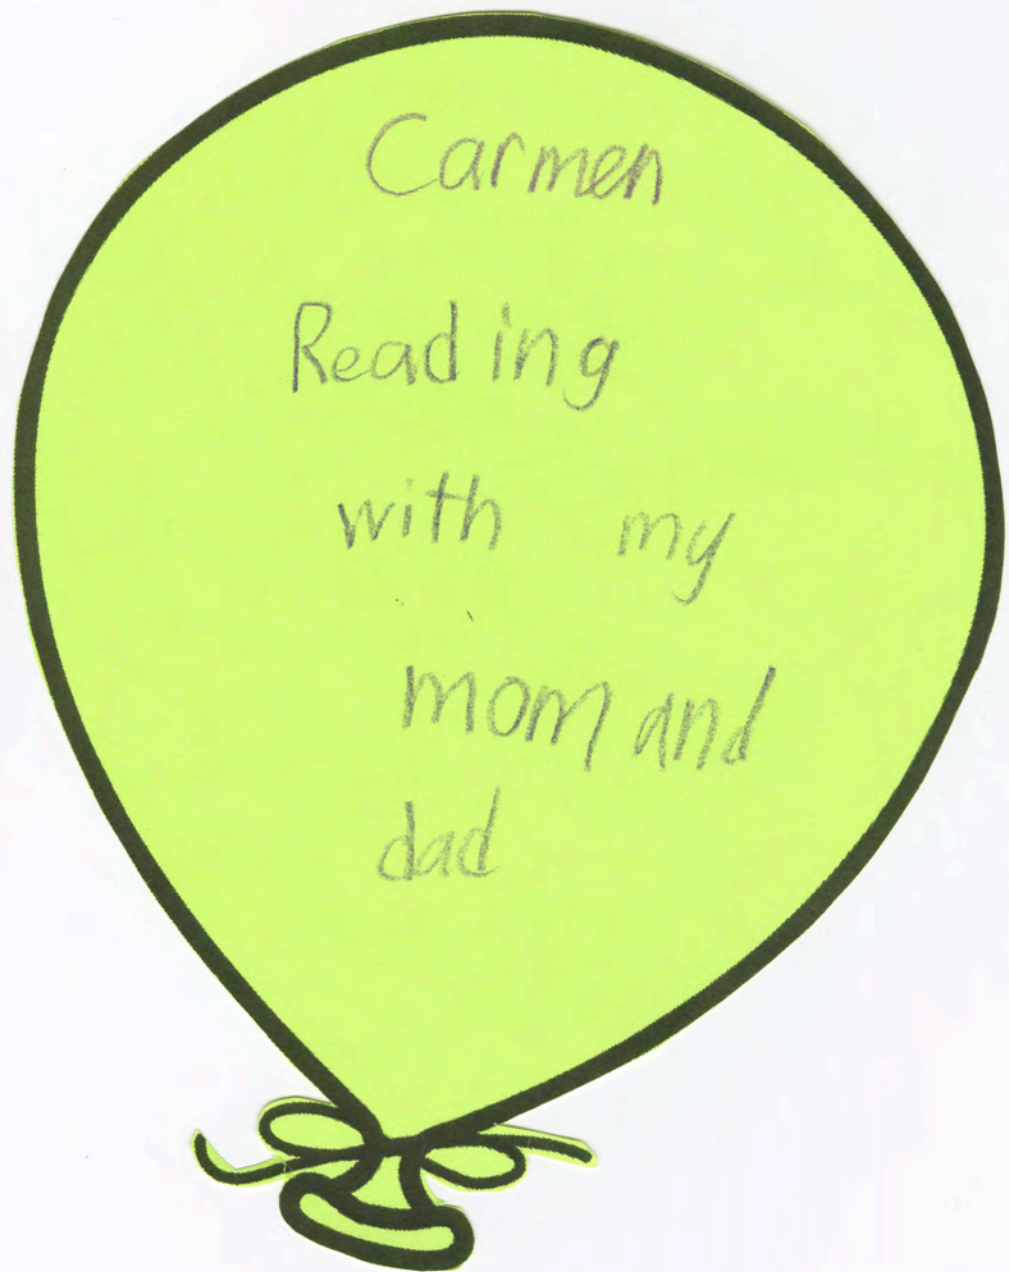 Carmen
Reading
with my
mom and
dad